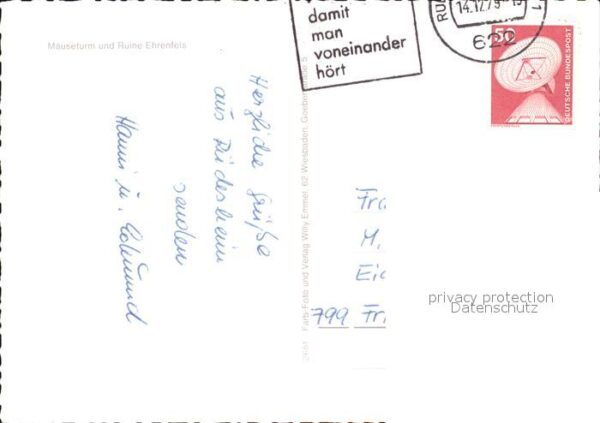 Mäuseturm und Ruine Ehrenfels
Herzliche Grüße
aus Rüdesheim
senden
Hanni u. Edmund
Farb-Foto und Verlag Willy Emmel, 62 Wiesbaden,
damit
man
voneinander
hört
14.12.79
622
50
DEUTSCHE BUNDESPOST
Fra
M.
Eic
799 Fri
privacy protection
Datenschutz